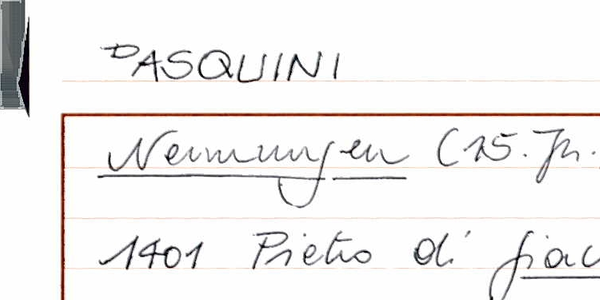 PASQUINI
Nennungen (15. Jh.
1401 Pietro di Giac